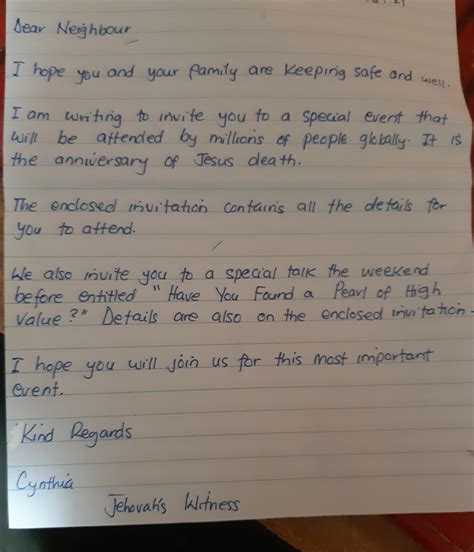 Dear Neighbour
I hope you and your family are keeping safe and well.
I am writing to invite you to a special event that
will be attended by millions of people globally. It is
the anniversary of Jesus death.
The enclosed invitation contains all the details for
you to attend.
We also invite you to a special talk the weekend
before entitled "Have You Found a Pearl of High
Value?" Details are also on the enclosed invitation.
I hope you will join us for this most important
event.
Kind Regards
Cynthia
Jehovah's Witness